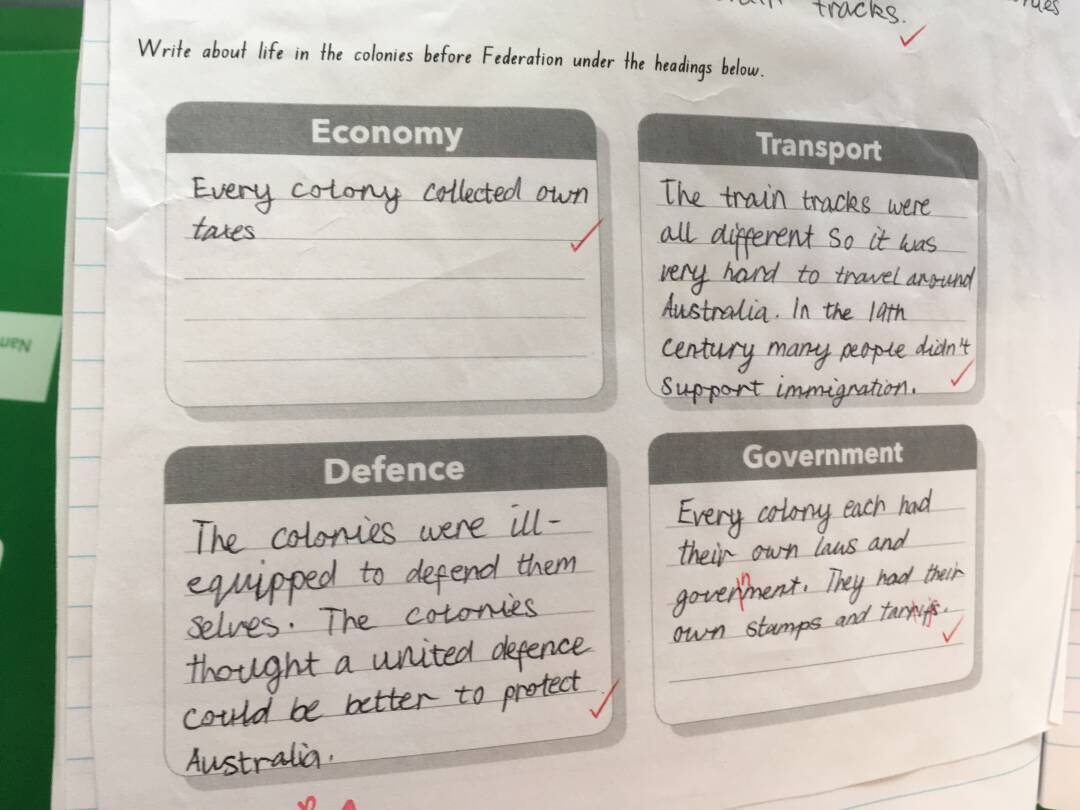 tracks.
Write about life in the colonies before Federation under the headings below.
Economy
Every colony collected own
taxes
Transport
The train tracks were
all different so it was
very hard to travel around
Australia. In the 19th
century many people didn't
support immigration.
Defence
The colonies were ill-
equipped to defend them
selves. The colonies
thought a united defence
could be better to protect
Australia.
Government
Every colony each had
their own laws and
government. They had their
own stamps and